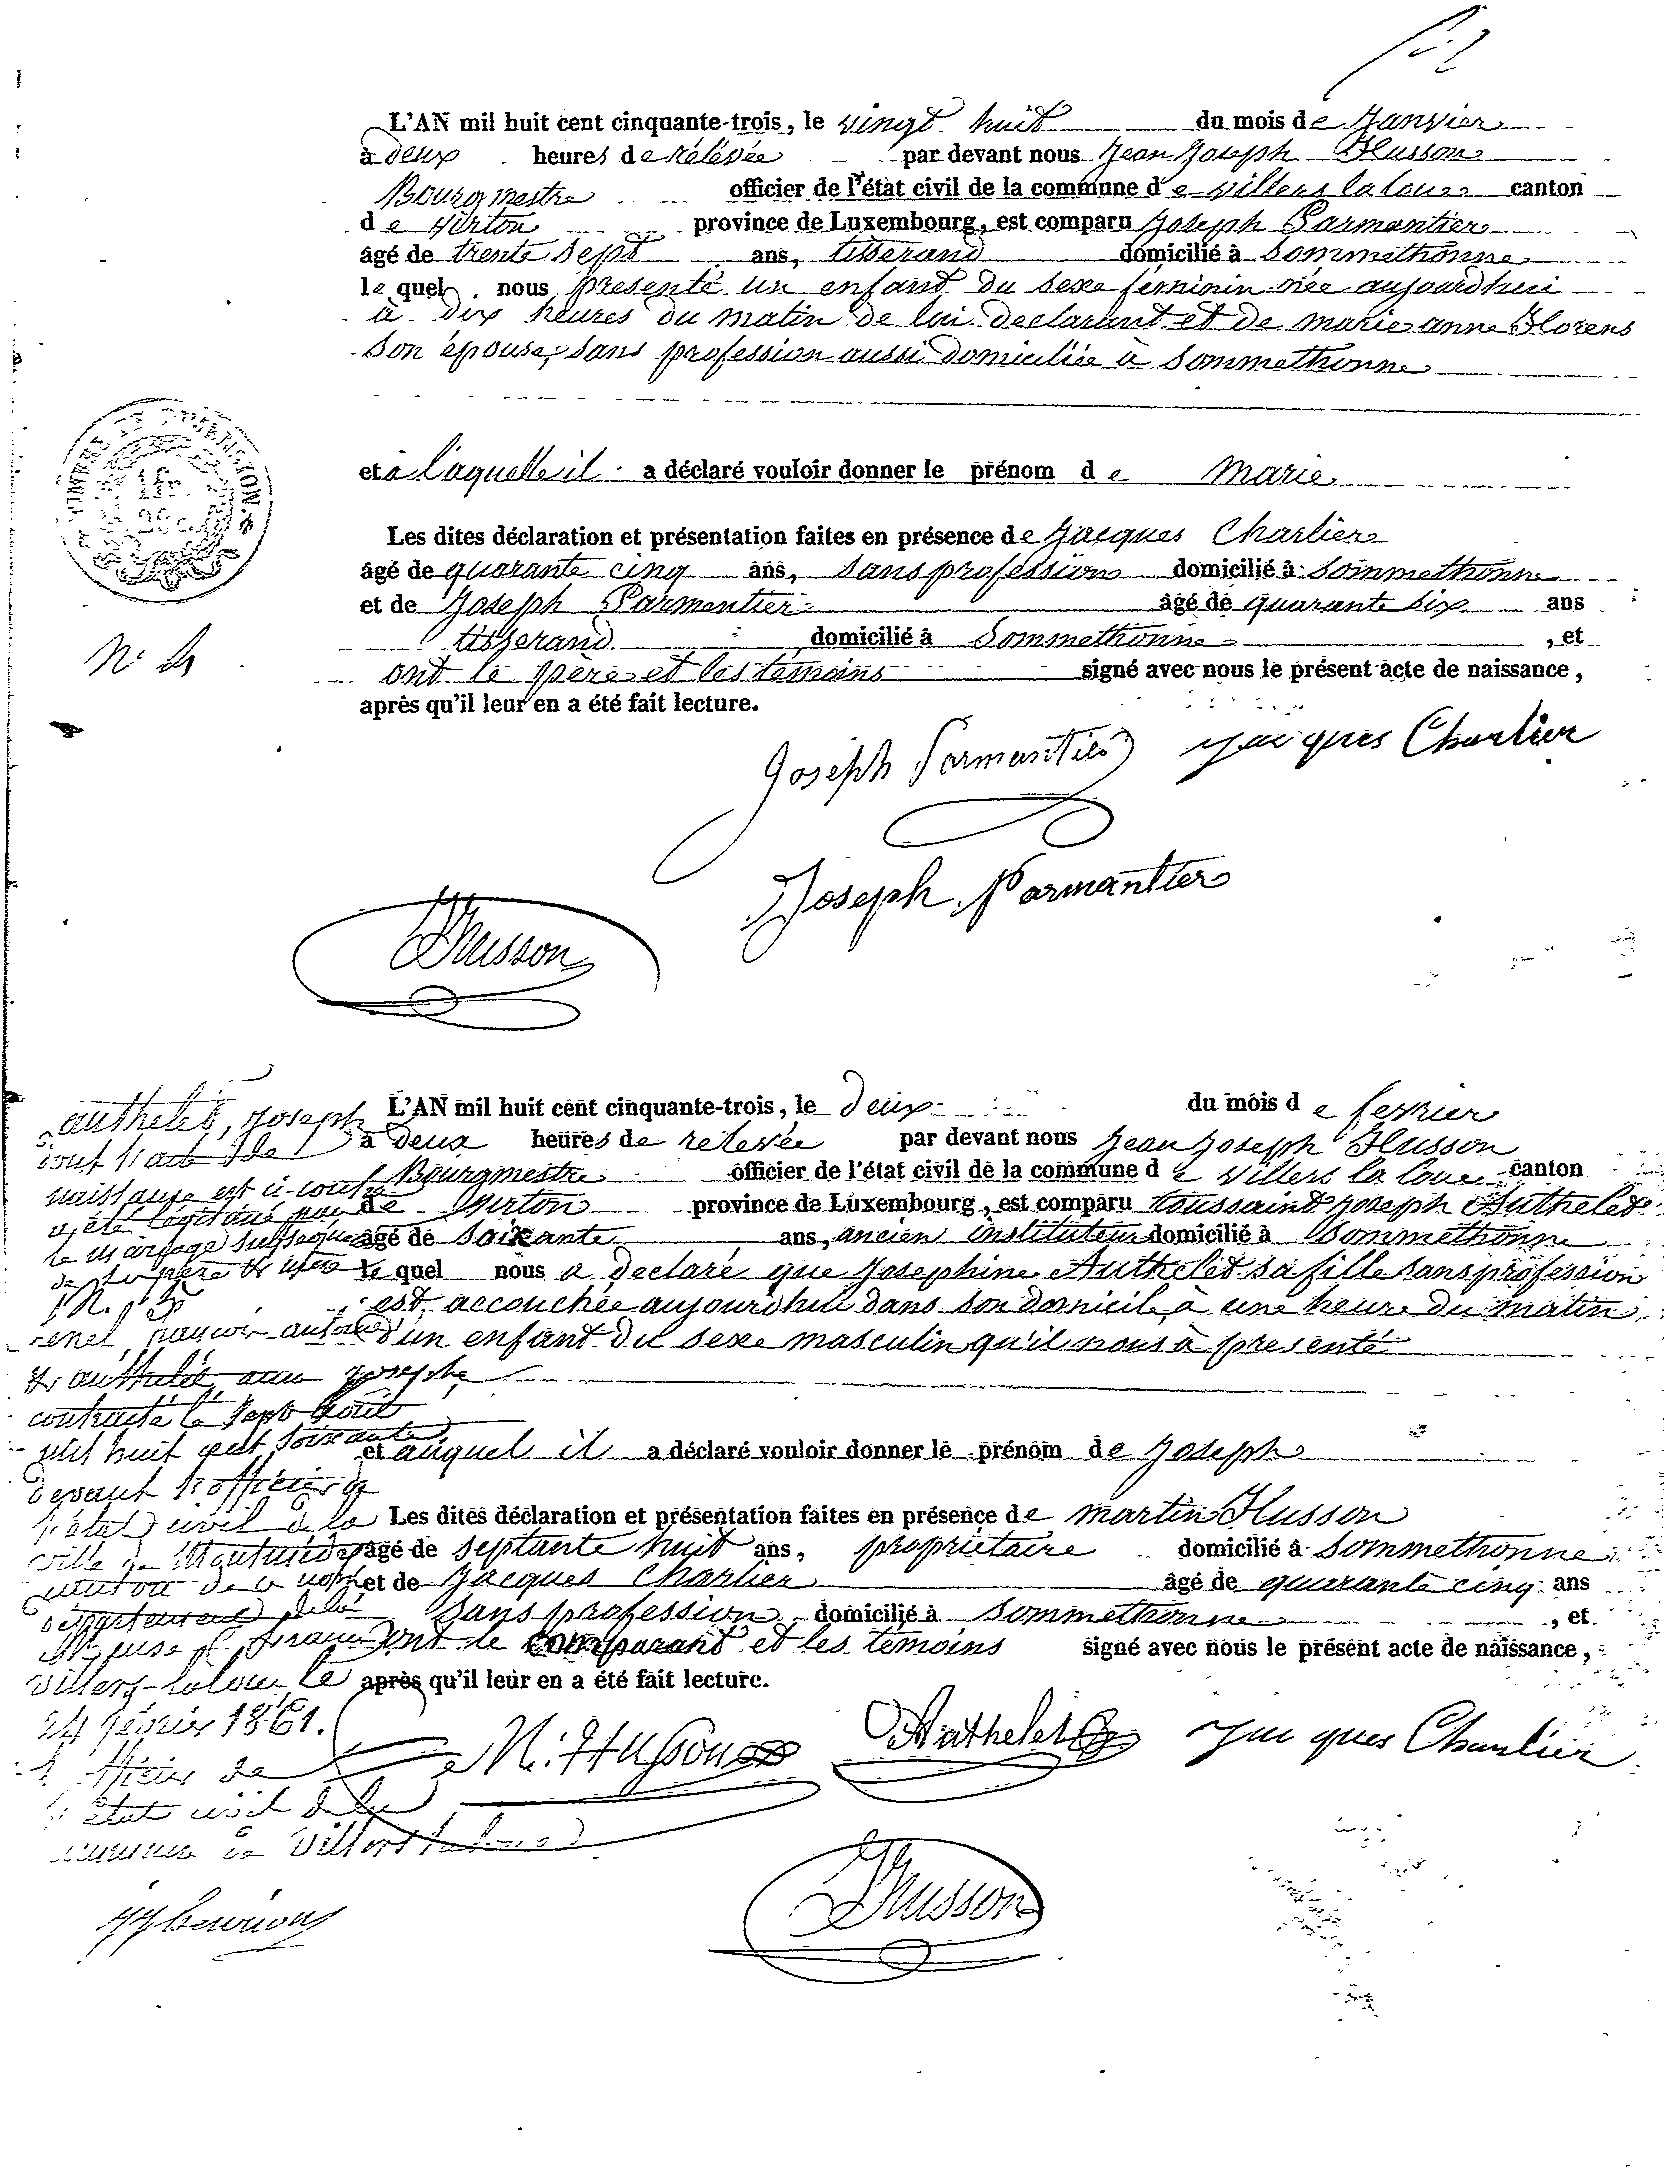 L'AN mil huit cent cinquante-trois, le vingt huit du mois de Janvier
à deux heures de relevée par devant nous Jean Joseph Husson
Bourgmestre officier de l'état civil de la commune de villers la loue canton
de Virton province de Luxembourg, est comparu Joseph Parmentier
âgé de trente sept ans, tisserand domicilié à Sommethonne
le quel nous presenté un enfant du sexe féminin née aujourdhui
à dix heures du matin de lui declarant et de marie anne Florens
son épouse, sans profession aussi domiciliée à Sommethonne
TIMBRE DE DIMENSION
et à laquelle il a déclaré vouloir donner le prénom de Marie
Les dites déclaration et présentation faites en présence de Jacques Charlier
âgé de quarante cinq ans, sans profession domicilié à Sommethonne
et de Joseph Parmentier âgé de quarante six ans
tisserand domicilié à Sommethonne, et
N° 4
ont le père et les témoins signé avec nous le présent acte de naissance,
après qu'il leur en a été fait lecture.
Joseph Parmentier Jacques Charlier
Joseph Parmantier
JHusson
L'AN mil huit cent cinquante-trois, le deux du mois de fevrier
à deux heures de relevée par devant nous Jean Joseph Husson
Bourgmestre officier de l'état civil de la commune de Villers la loue canton
de Virton province de Luxembourg, est comparu toussaint joseph Authelet
âgé de soixante ans, ancien instituteur domicilié à Sommethonne
le quel nous a declaré que Josephine Authelet sa fille sans profession
est accouchée aujourdhui dans son domicile à une heure du matin
d'un enfant du sexe masculin qu'il nous à presenté
et auquel il a déclaré vouloir donner le prénom de Joseph
Les dites déclaration et présentation faites en présence de martin Husson
âgé de septante huit ans, propriétaire domicilié à Sommethonne
et de Jacques Charlier âgé de quarante cinq ans
sans profession domicilié à Sommethonne, et
ont le comparant et les témoins signé avec nous le présent acte de naissance,
après qu'il leur en a été fait lecture.
authelet, Joseph
dont l'acte de
naissance est ci-contre
a été légitimé par
le mariage subséquent
de ses père & mère
N° 5
& authelet, anne josephe
contracté le sept août
mil huit cent soixante
devant l'officier de
l'état civil de la
ville de
département de la
Meuse
Villers-laloue le
24 février 1861.
l'officier de
l'état civil de la
commune de Villers laloue
M: Husson Authelet Jacques Charlier
JHusson